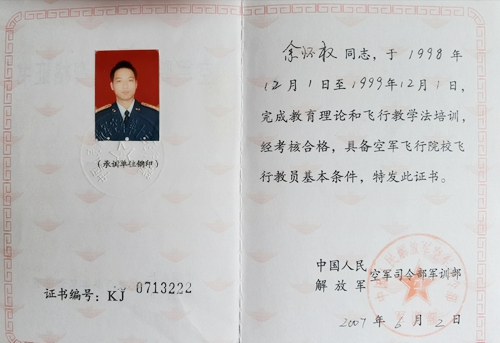 （承训单位钢印）
证书编号：KJ 0713222
余怀权 同志，于 1998 年
12月1日至1999年12月1日，
完成教育理论和飞行教学法培训，
经考核合格，具备空军飞行院校飞
行教员基本条件，特发此证书。
中国人民
解放军 空军司令部军训部
2007 年 6 月 2 日